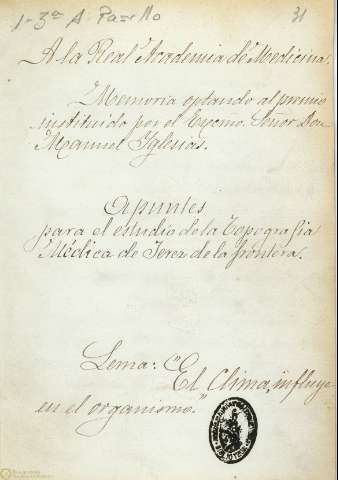 1-3ª A. Pasillo
31
A la Real Academia de Medicina.
Memoria optando al premio
instituido por el Excmo. Señor Don
Manuel Iglesias.
Apuntes
para el estudio de la Topografia
Médica de Jerez de la frontera.
Lema: "
El Clima, influye
en el organismo."